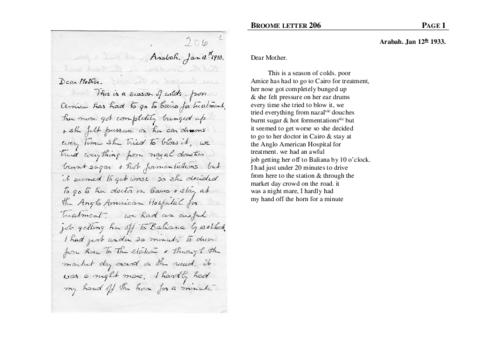 206
Arabah. Jan 12th 1933.
Dear Mother.
This is a season of colds. poor
Amice has had to go to Cairo for treatment,
her nose got completely bunged up
& she felt pressure on her ear drums
every time she tried to blow it, we
tried everything from nazal douches
burnt sugar & hot formentations but
it seemed to get worse so she decided
to go to her doctor in Cairo & stay at
the Anglo American Hospital for
treatment. we had an awful
job getting her off to Baliana by 10 o'clock.
I had just under 20 minutes to drive
from here to the station & through the
market day crowd on the road. it
was a night mare, I hardly had
my hand off the horn for a minute
BROOME LETTER 206
PAGE 1
Arabah. Jan 12th 1933.
Dear Mother.
This is a season of colds. poor
Amice has had to go to Cairo for treatment,
her nose got completely bunged up
& she felt pressure on her ear drums
every time she tried to blow it, we
tried everything from nazal douches
burnt sugar & hot formentations but
it seemed to get worse so she decided
to go to her doctor in Cairo & stay at
the Anglo American Hospital for
treatment. we had an awful
job getting her off to Baliana by 10 o'clock.
I had just under 20 minutes to drive
from here to the station & through the
market day crowd on the road. it
was a night mare, I hardly had
my hand off the horn for a minute